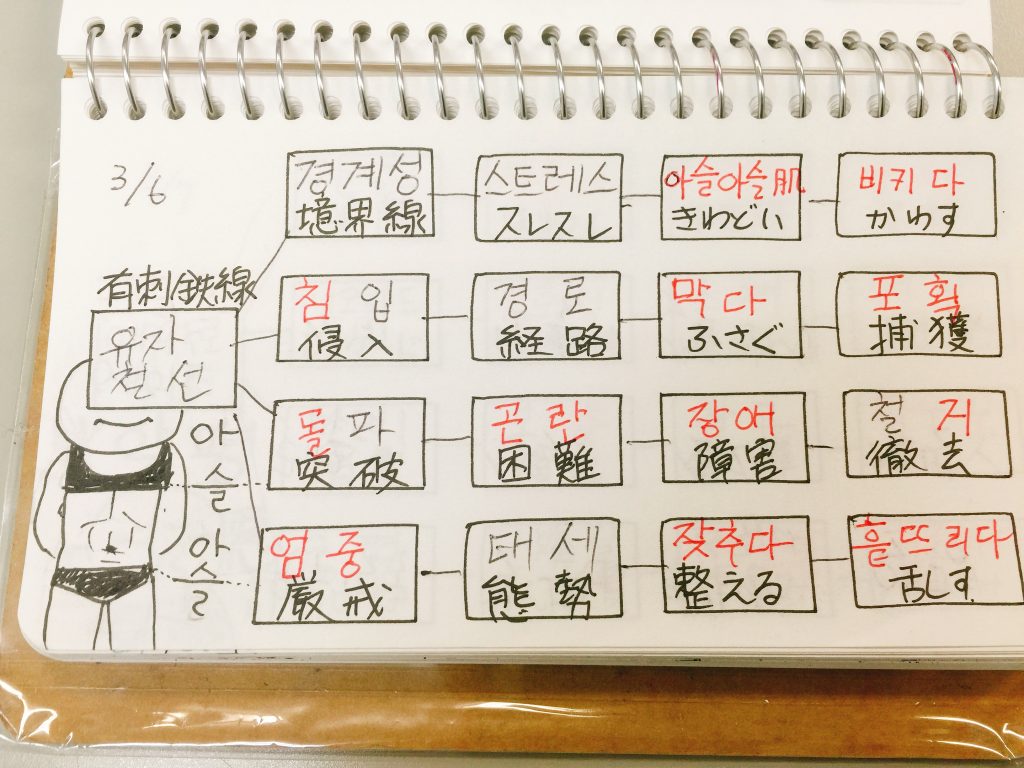 3/6
경계성
境界線
스트레스
スレスレ
아슬아슬肌
きわどい
비키다
かわす
有刺鉄線
유자
철선
침입
侵入
경로
経路
막다
ふさぐ
포획
捕獲
돌파
突破
곤란
困難
장애
障害
철거
徹去
엄중
厳戒
태세
態勢
잦추다
整える
흩뜨리다
乱す
아슬
아슬